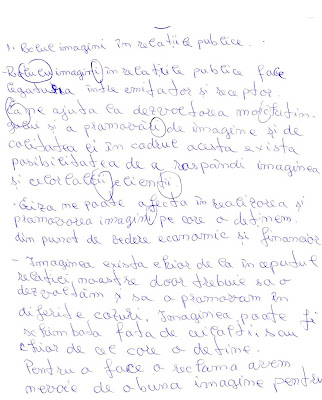 1. Rolul imagini în relațiile publice.
-Rolulu imaginii în relațiile publice face
legatura între emitator si receptor.
Iarne ajuta la dezvoltarea
gului si a promovării de imagine si de
calitatea ei în cadrul acesta exista
posibilitatea de a raspândi imaginea
si celorlalții clienții
-Criza ne poate afecta în realizarea si
promovarea imagini pe care o deținem.
din punct de vedere economic si financiar
- Imaginea exista chiar de la începutul
relației noastre doar trebuie sa o
dezvoltăm si sa a promovam în
diferite cazuri. Imaginea poate fi
schimbata fata de ceilalți, sau
chiar de cel care o detine.
Pentru a face o reclama avem
nevoie de o buna imagine pentru